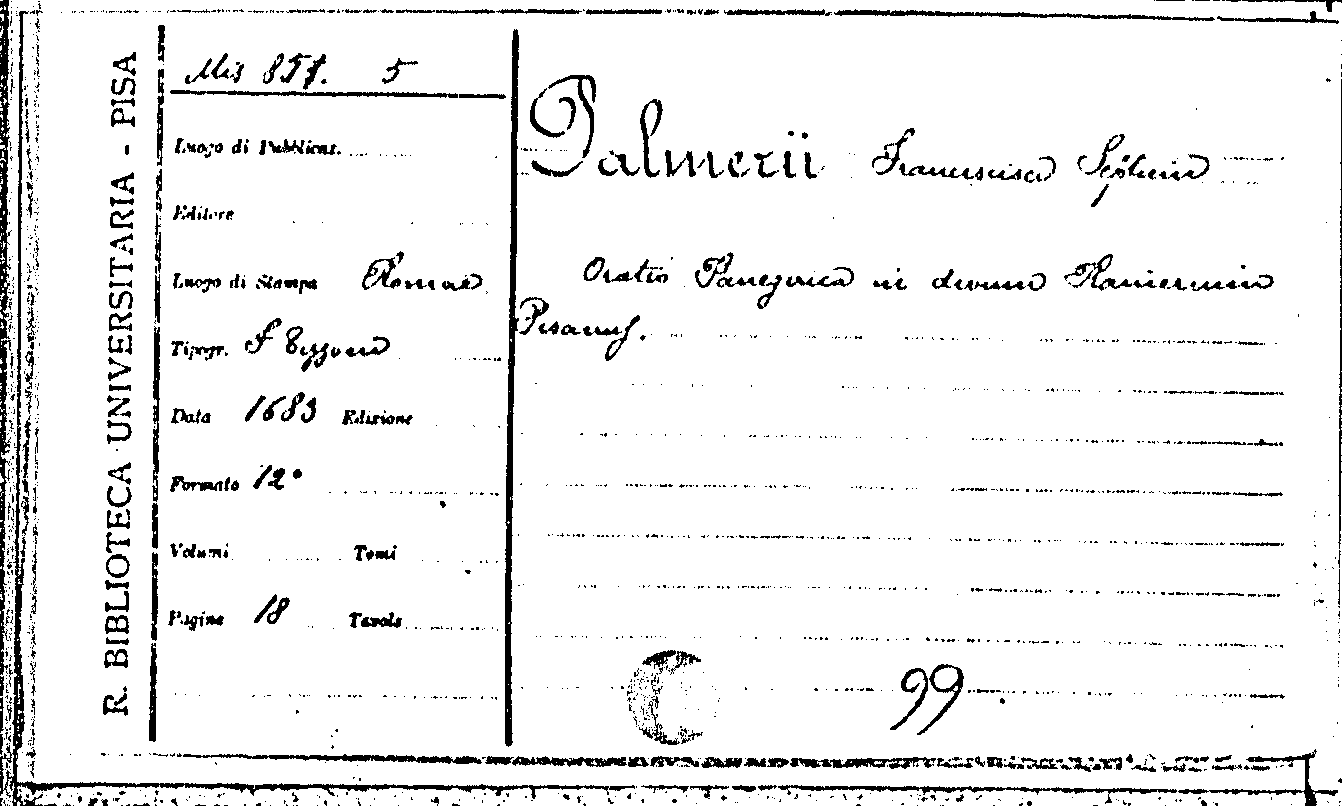 R. BIBLIOTECA UNIVERSITARIA - PISA
Mis 857. 5
Luogo di Pubblicaz.
Editore
Luogo di Stampa Romae
Tipogr.
Data 1683 Edizione
Formato 12°
Volumi Tomi
Pagine 18 Tavole
Palmerii
Oratio Panegirica in divum Ranierium
Pisanus.
99